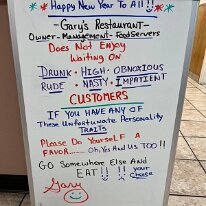 Happy New Year To All!!
-Gary's Restaurant-
Owner-Management-FoodServers
Does Not Enjoy
Waiting On
Drunk · High · Obnoxious
Rude · Nasty · Impatient
Customers
If You Have Any Of
These Unfortunate Personality
Traits
Please Do Yourself A
Favor...... Oh, Yes And Us Too!!
Go Somewhere Else And
Eat!! !! your choice
Gary